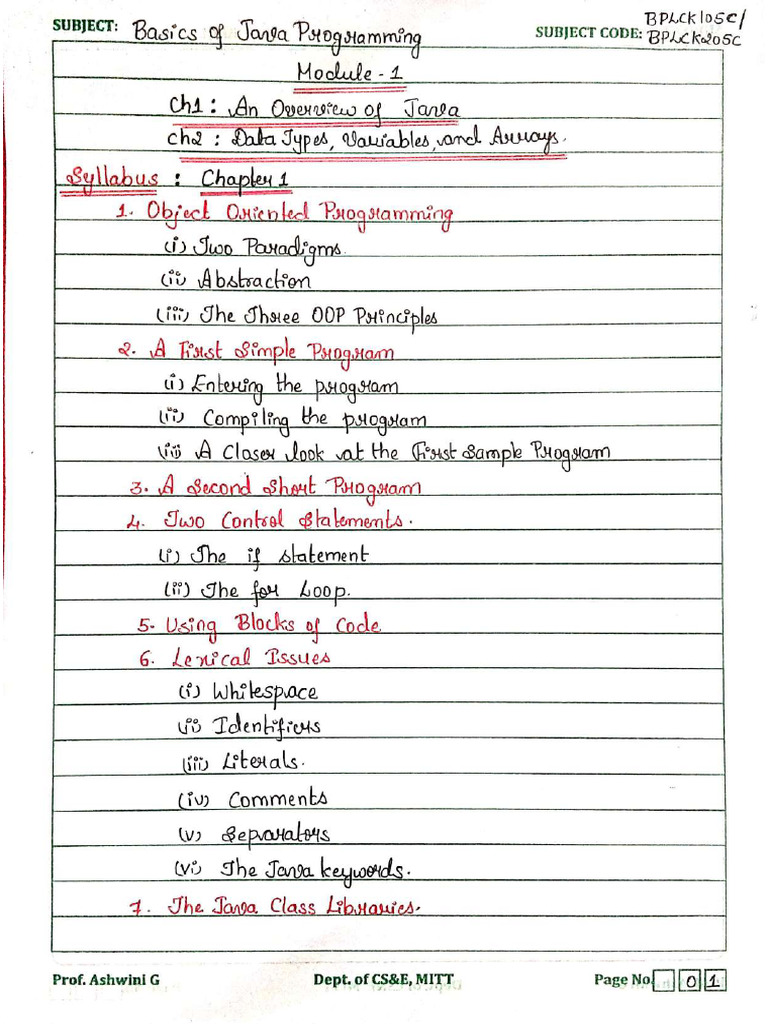 SUBJECT: Basics of Java Programming SUBJECT CODE: BPLCK105C/
BPLCK205C
Module - 1
Ch1 : An Overview of Java
Ch2 : Data Types, Variables, and Arrays.
Syllabus : Chapter 1
1. Object Oriented Programming
(i) Two Paradigms.
(ii) Abstraction
(iii) The Three OOP Principles
2. A First Simple Program
(i) Entering the program
(ii) Compiling the program
(iii) A Closer look at the First Sample Program
3. A Second Short Program
4. Two Control Statements.
(i) The if statement
(ii) The for Loop.
5. Using Blocks of Code
6. Lexical Issues
(i) Whitespace
(ii) Identifiers
(iii) Literals.
(iv) Comments
(v) Separators
(vi) The Java keywords.
7. The Java Class Libraries.
Prof. Ashwini G Dept. of CS&E, MITT Page No. 0 1